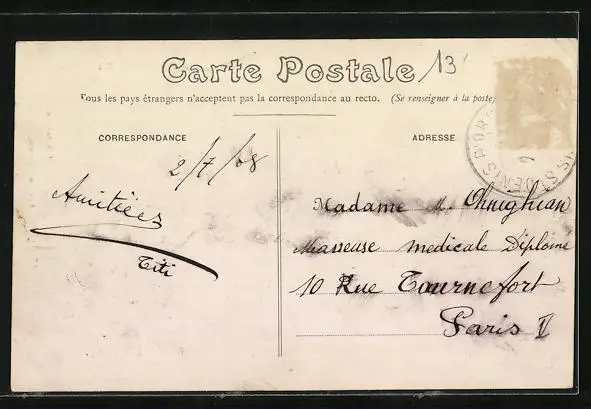 Carte Postale
13
Tous les pays étrangers n'acceptent pas la correspondance au recto. (Se renseigner à la poste)
CORRESPONDANCE
ADRESSE
2/7/08
Amitiées
Titi
Madame M.
Masseuse medicale Diplome
10 Rue Tournefort
Paris V